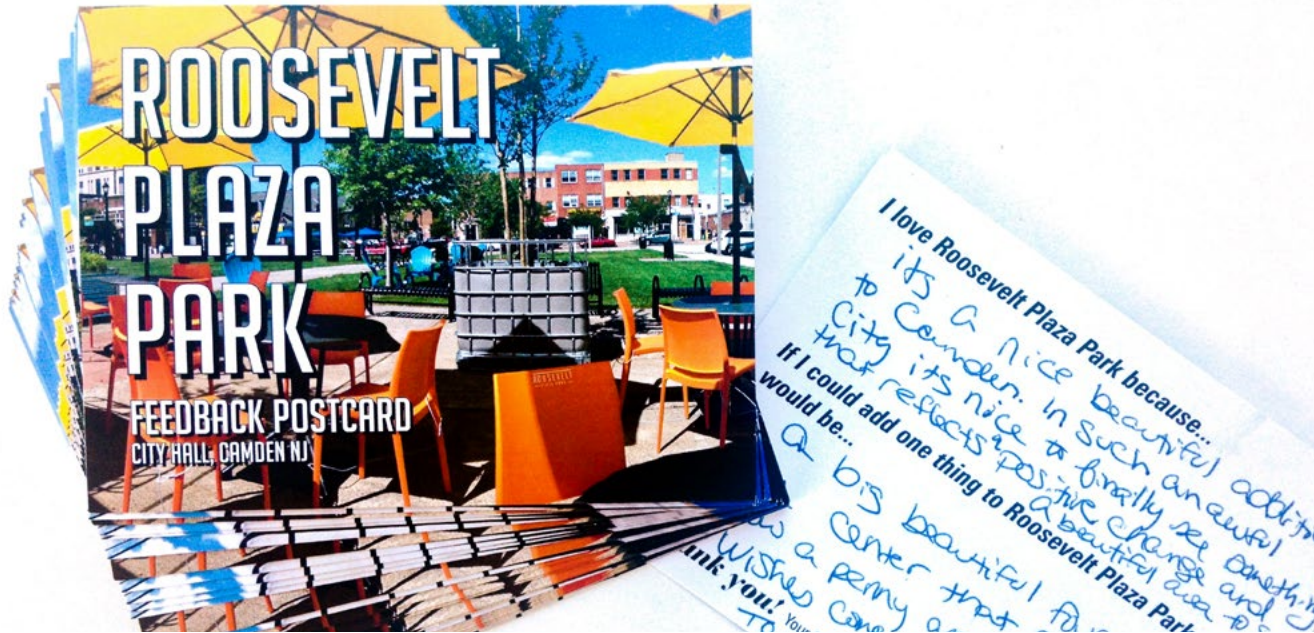 ROOSEVELT
PLAZA
PARK
FEEDBACK POSTCARD
CITY HALL, CAMDEN NJ
ROOSEVELT
I love Roosevelt Plaza Park because...
its a nice beautiful addition
to Camden. In such an awful
City its nice to finally see something
that reflects positive change and
a beautiful area to
If I could add one thing to Roosevelt Plaza Park
would be...
a big beautiful
center that
as a penny
wishes
To
ank you! Your